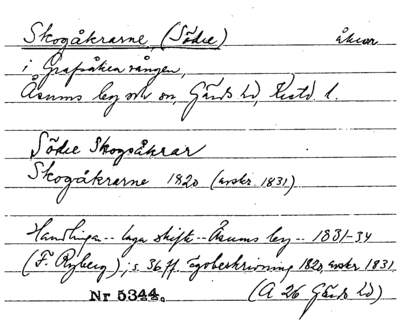 Skogåkrarne, (Södre) åkrar
i Grafsåkravången,
Åsums by och sn, Gärds hd, Kristd. l.
Södre Skogsåkrar
Skogåkrarne 1820 (avskr. 1831)
Handlinga -- laga skifte -- Åsums by -- 1831-34
(F. Ryberg), s. 36 ff. Ägobeskrivning 1820, avskr. 1831.
Nr 5344. (A 26 Gärds hd)